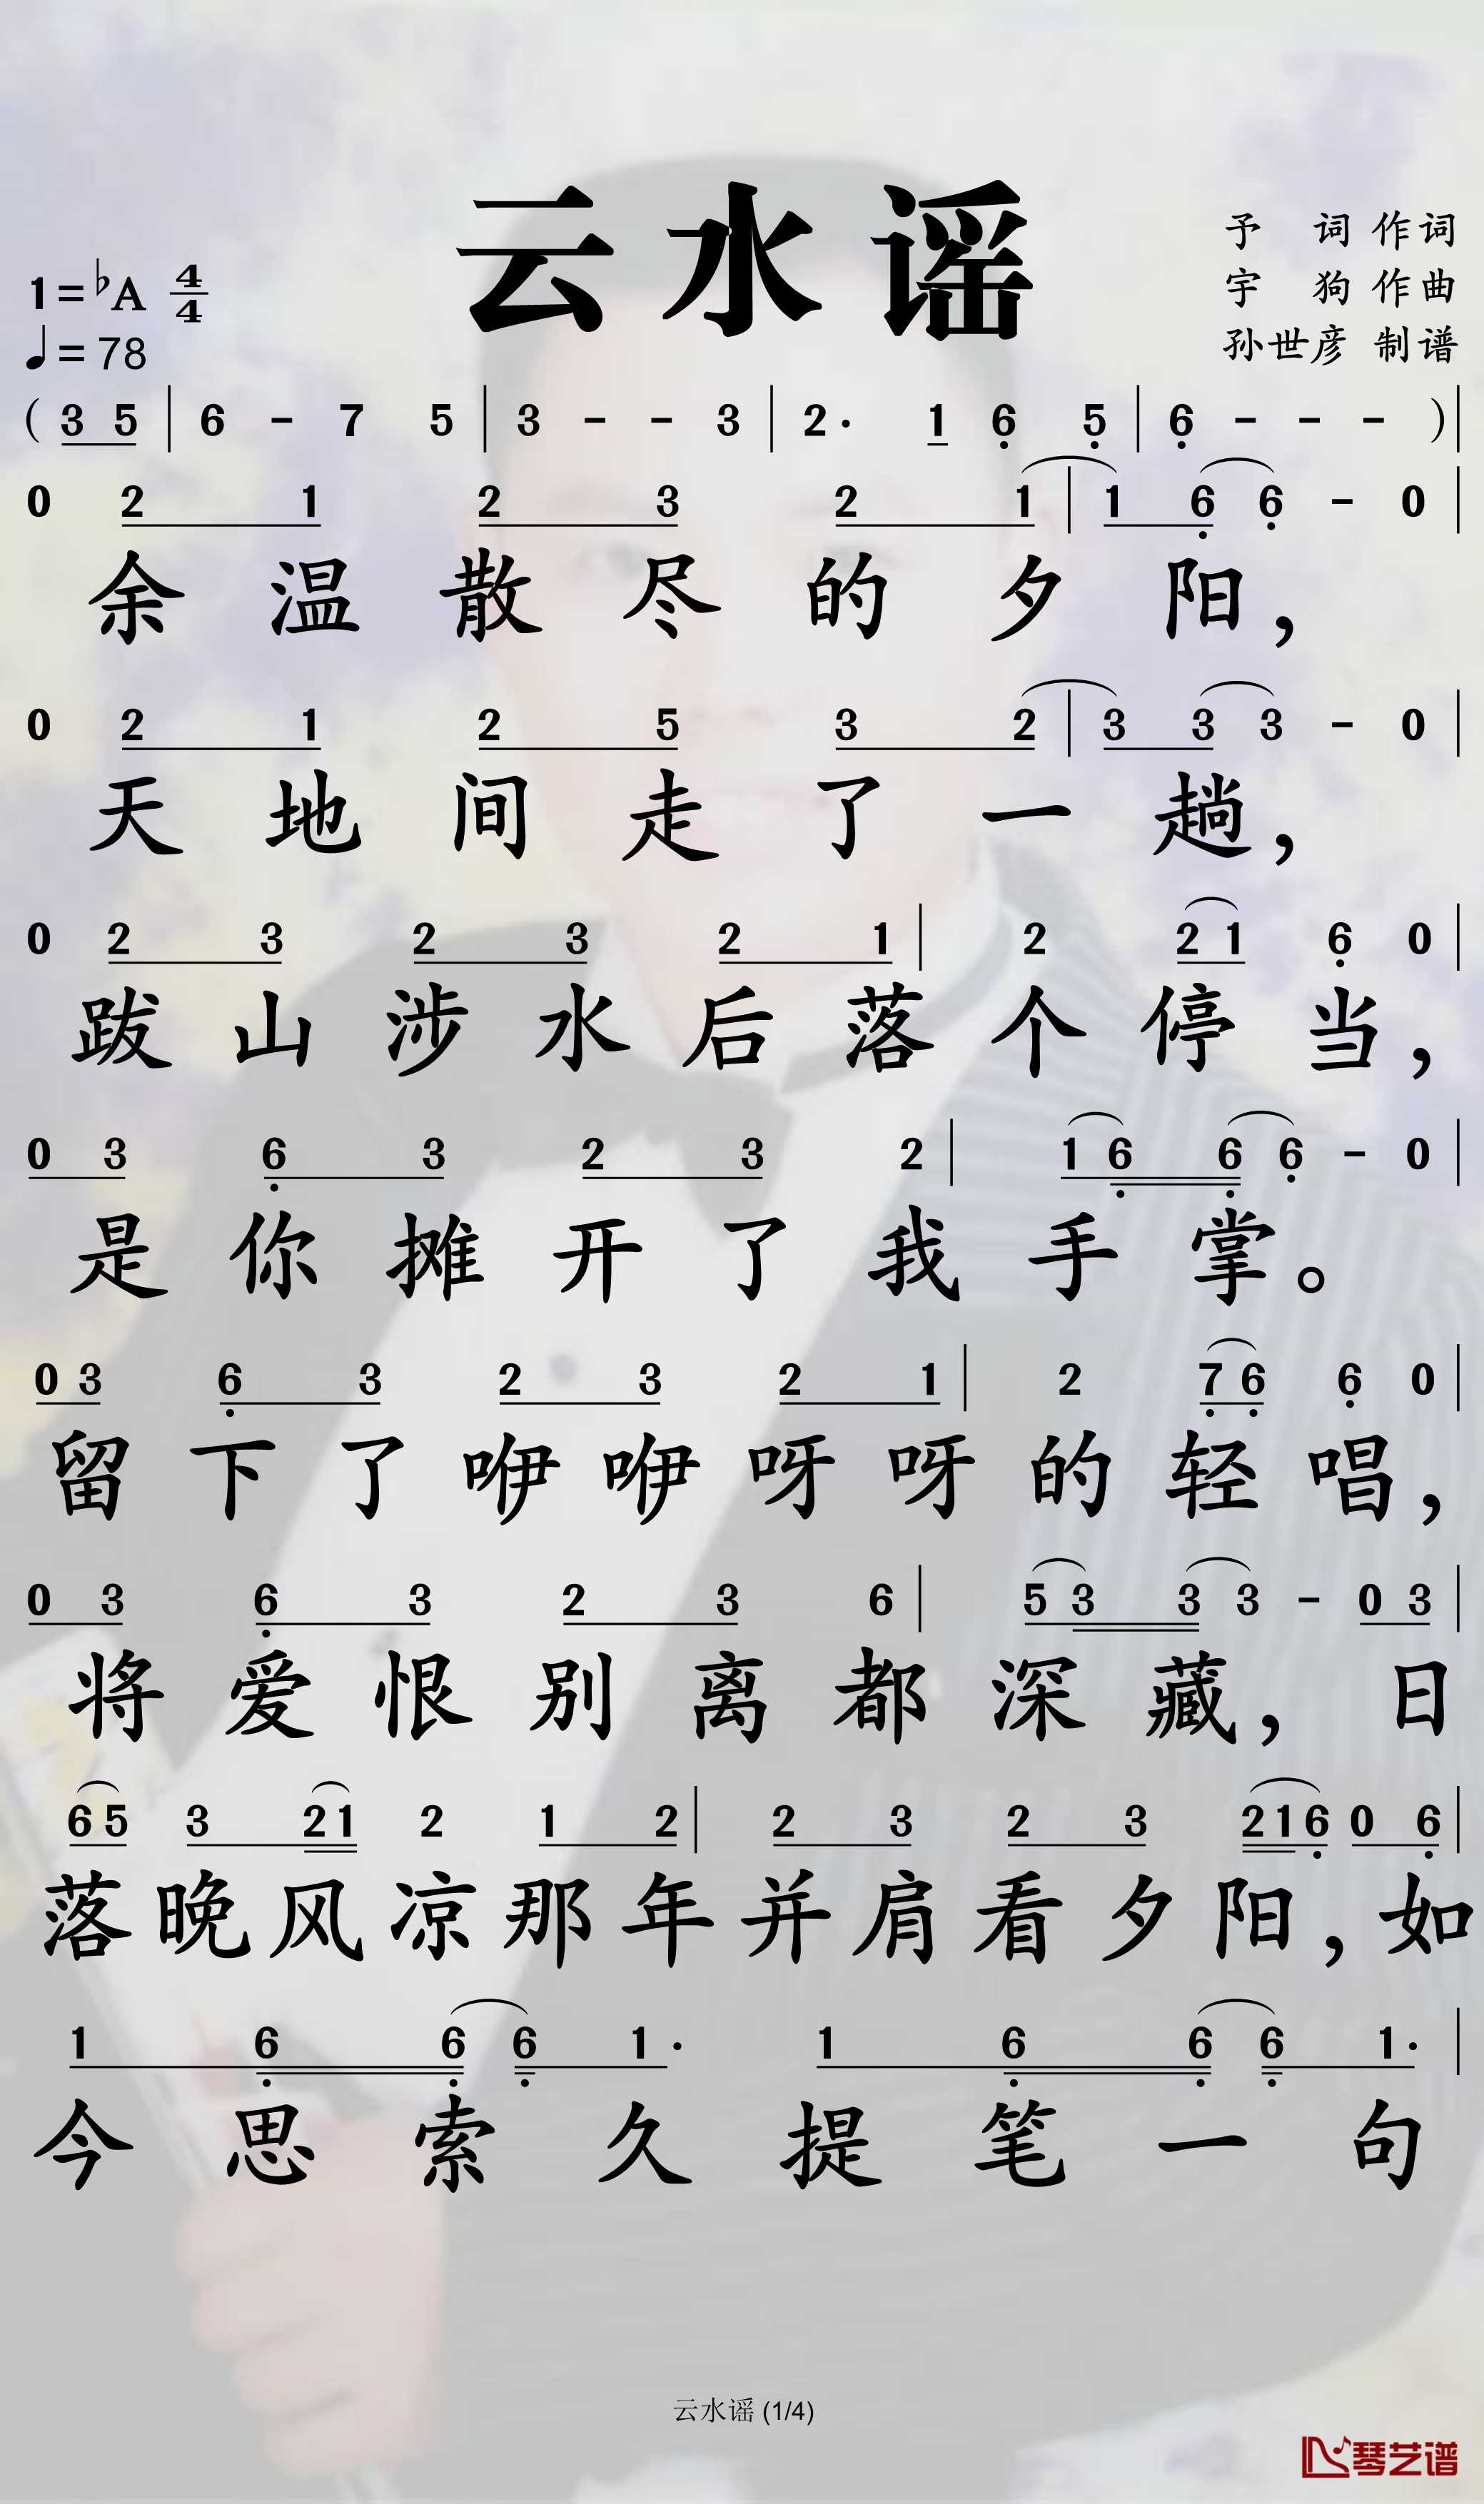 云水谣
予 词 作词
宇 狗 作曲
孙世彦 制谱
1=♭A 4/4
♩=78
( 3 5 | 6 - 7 5 | 3 - - 3 | 2. 1 6 5 | 6 - - - ) |
0 2 1 2 3 2 1 | 1 6 6 - 0 |
余温散尽的夕阳，
0 2 1 2 5 3 2 | 3 3 3 - 0 |
天地间走了一趟，
0 2 3 2 3 2 1 | 2 2 1 6 0 |
跋山涉水后落个停当，
0 3 6 3 2 3 2 | 1 6 6 6 - 0 |
是你摊开了我手掌。
0 3 6 3 2 3 2 1 | 2 7 6 6 0 |
留下了咿咿呀呀的轻唱，
0 3 6 3 2 3 6 | 5 3 3 3 - 0 3 |
将爱恨别离都深藏，日
6 5 3 2 1 2 1 2 | 2 3 2 3 2 1 6 0 6 |
落晚风凉那年并肩看夕阳，如
1 6 6 6 1. 1 6 6 6 1. |
今思索久提笔一句
云水谣 (1/4)
琴艺谱